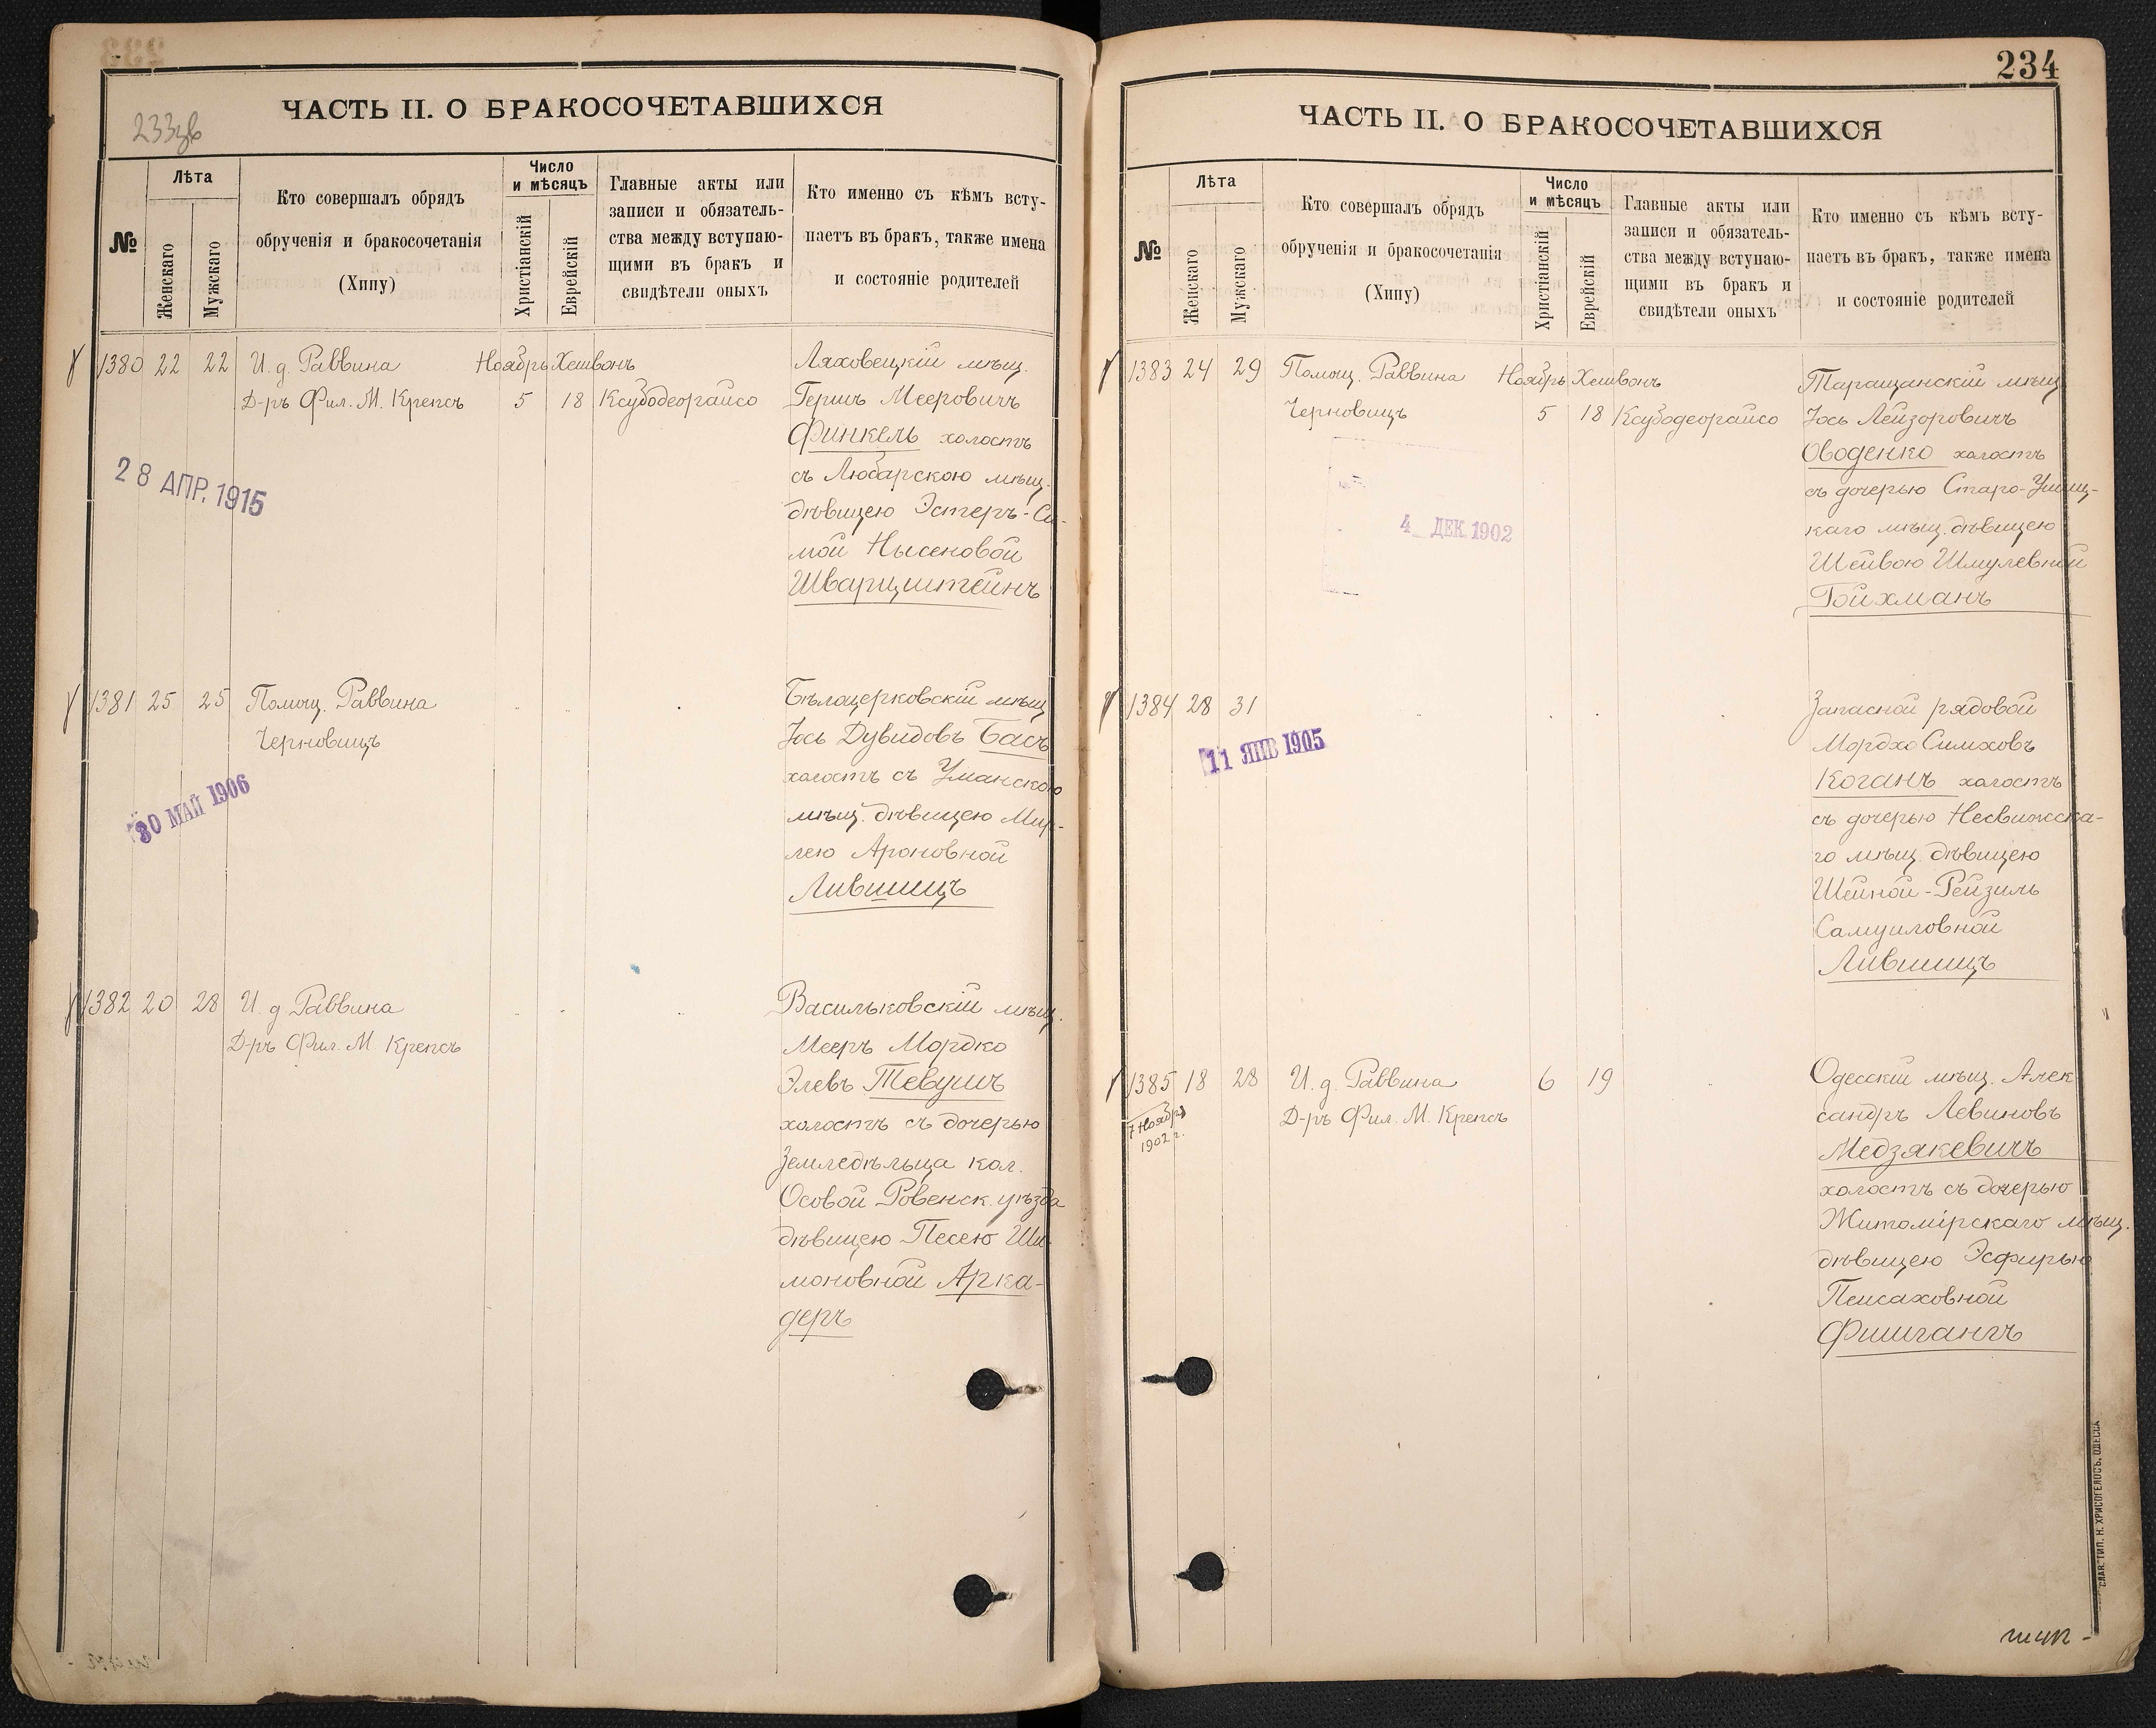 233зв
ЧАСТЬ II. О БРАКОСОЧЕТАВШИХСЯ
№
Лѣта
Женскаго
Мужскаго
Кто совершалъ обрядъ
обрученія и бракосочетанія
(Хипу)
Число
и мѣсяцъ
Христіанскій
Еврейскій
Главные акты или
записи и обязатель-
ства между вступаю-
щими въ бракъ и
свидѣтели оныхъ
Кто именно съ кѣмъ всту-
паетъ въ бракъ, также имена
и состояніе родителей
1380 22 22 И. д. Раввина Ноябрь Хешвонъ Ляховецкій мѣщ.
Д-ръ Фил. М. Крепсъ 5 18 Ксубодеорайсо Гершъ Мееровичъ
Финкель холостъ
съ Любарскою мѣщ.
дѣвицею Эстеръ-Си-
мой Нысеновой
Шварцштейнъ
28 АПР. 1915
1381 25 25 Помощ. Раввина Бѣлоцерковскій мѣщ
Черновицъ Іось Дувидовъ Басъ
холостъ съ Уманскою
мѣщ. дѣвицею Мир-
лею Ароновной
Лившицъ
30 МАЙ 1906
1382 20 28 И. д. Раввина Васильковскій мѣщ.
Д-ръ Фил. М. Крепсъ Мееръ Мордко
Элевъ Тевушъ
холостъ съ дочерью
Земледѣльца кол.
Осовой Ровенск. уѣзда
дѣвицею Песею Ши-
моновной Арка-
деръ
234
ЧАСТЬ II. О БРАКОСОЧЕТАВШИХСЯ
№
Лѣта
Женскаго
Мужскаго
Кто совершалъ обрядъ
обрученія и бракосочетанія
(Хипу)
Число
и мѣсяцъ
Христіанскій
Еврейскій
Главные акты или
записи и обязатель-
ства между вступаю-
щими въ бракъ и
свидѣтели оныхъ
Кто именно съ кѣмъ всту-
паетъ въ бракъ, также имена
и состояніе родителей
1383 24 29 Помощ. Раввина Ноябрь Хешвонъ Таращанскій мѣщ
Черновицъ 5 18 Ксубодеорайсо Іось Лейзоровичъ
Оводенко холостъ
съ дочерью Старо-Ушиц-
каго мѣщ. дѣвицею
Шейвою Шмулевной
Гойхманъ
4 ДЕК. 1902
1384 28 31 Запасной рядовой
Мордхо Симховъ
Коганъ холостъ
съ дочерью Несвижска-
го мѣщ. дѣвицею
Шейной-Рейзиль
Самуиловной
Лившицъ
11 ЯНВ 1905
1385 18 28 И. д. Раввина 6 19 Одесскій мѣщ. Алек
Д-ръ Фил. М. Крепсъ сандръ Левиновъ
7 Ноября
1902 г.
Медзякевичъ
холостъ съ дочерью
Житомірскаго мѣщ.
дѣвицею Эсфирью
Пейсаховной
Фишгангъ
СЛАВ. ТИП. Н. ХРИСОГЕЛОСЪ, ОДЕССА